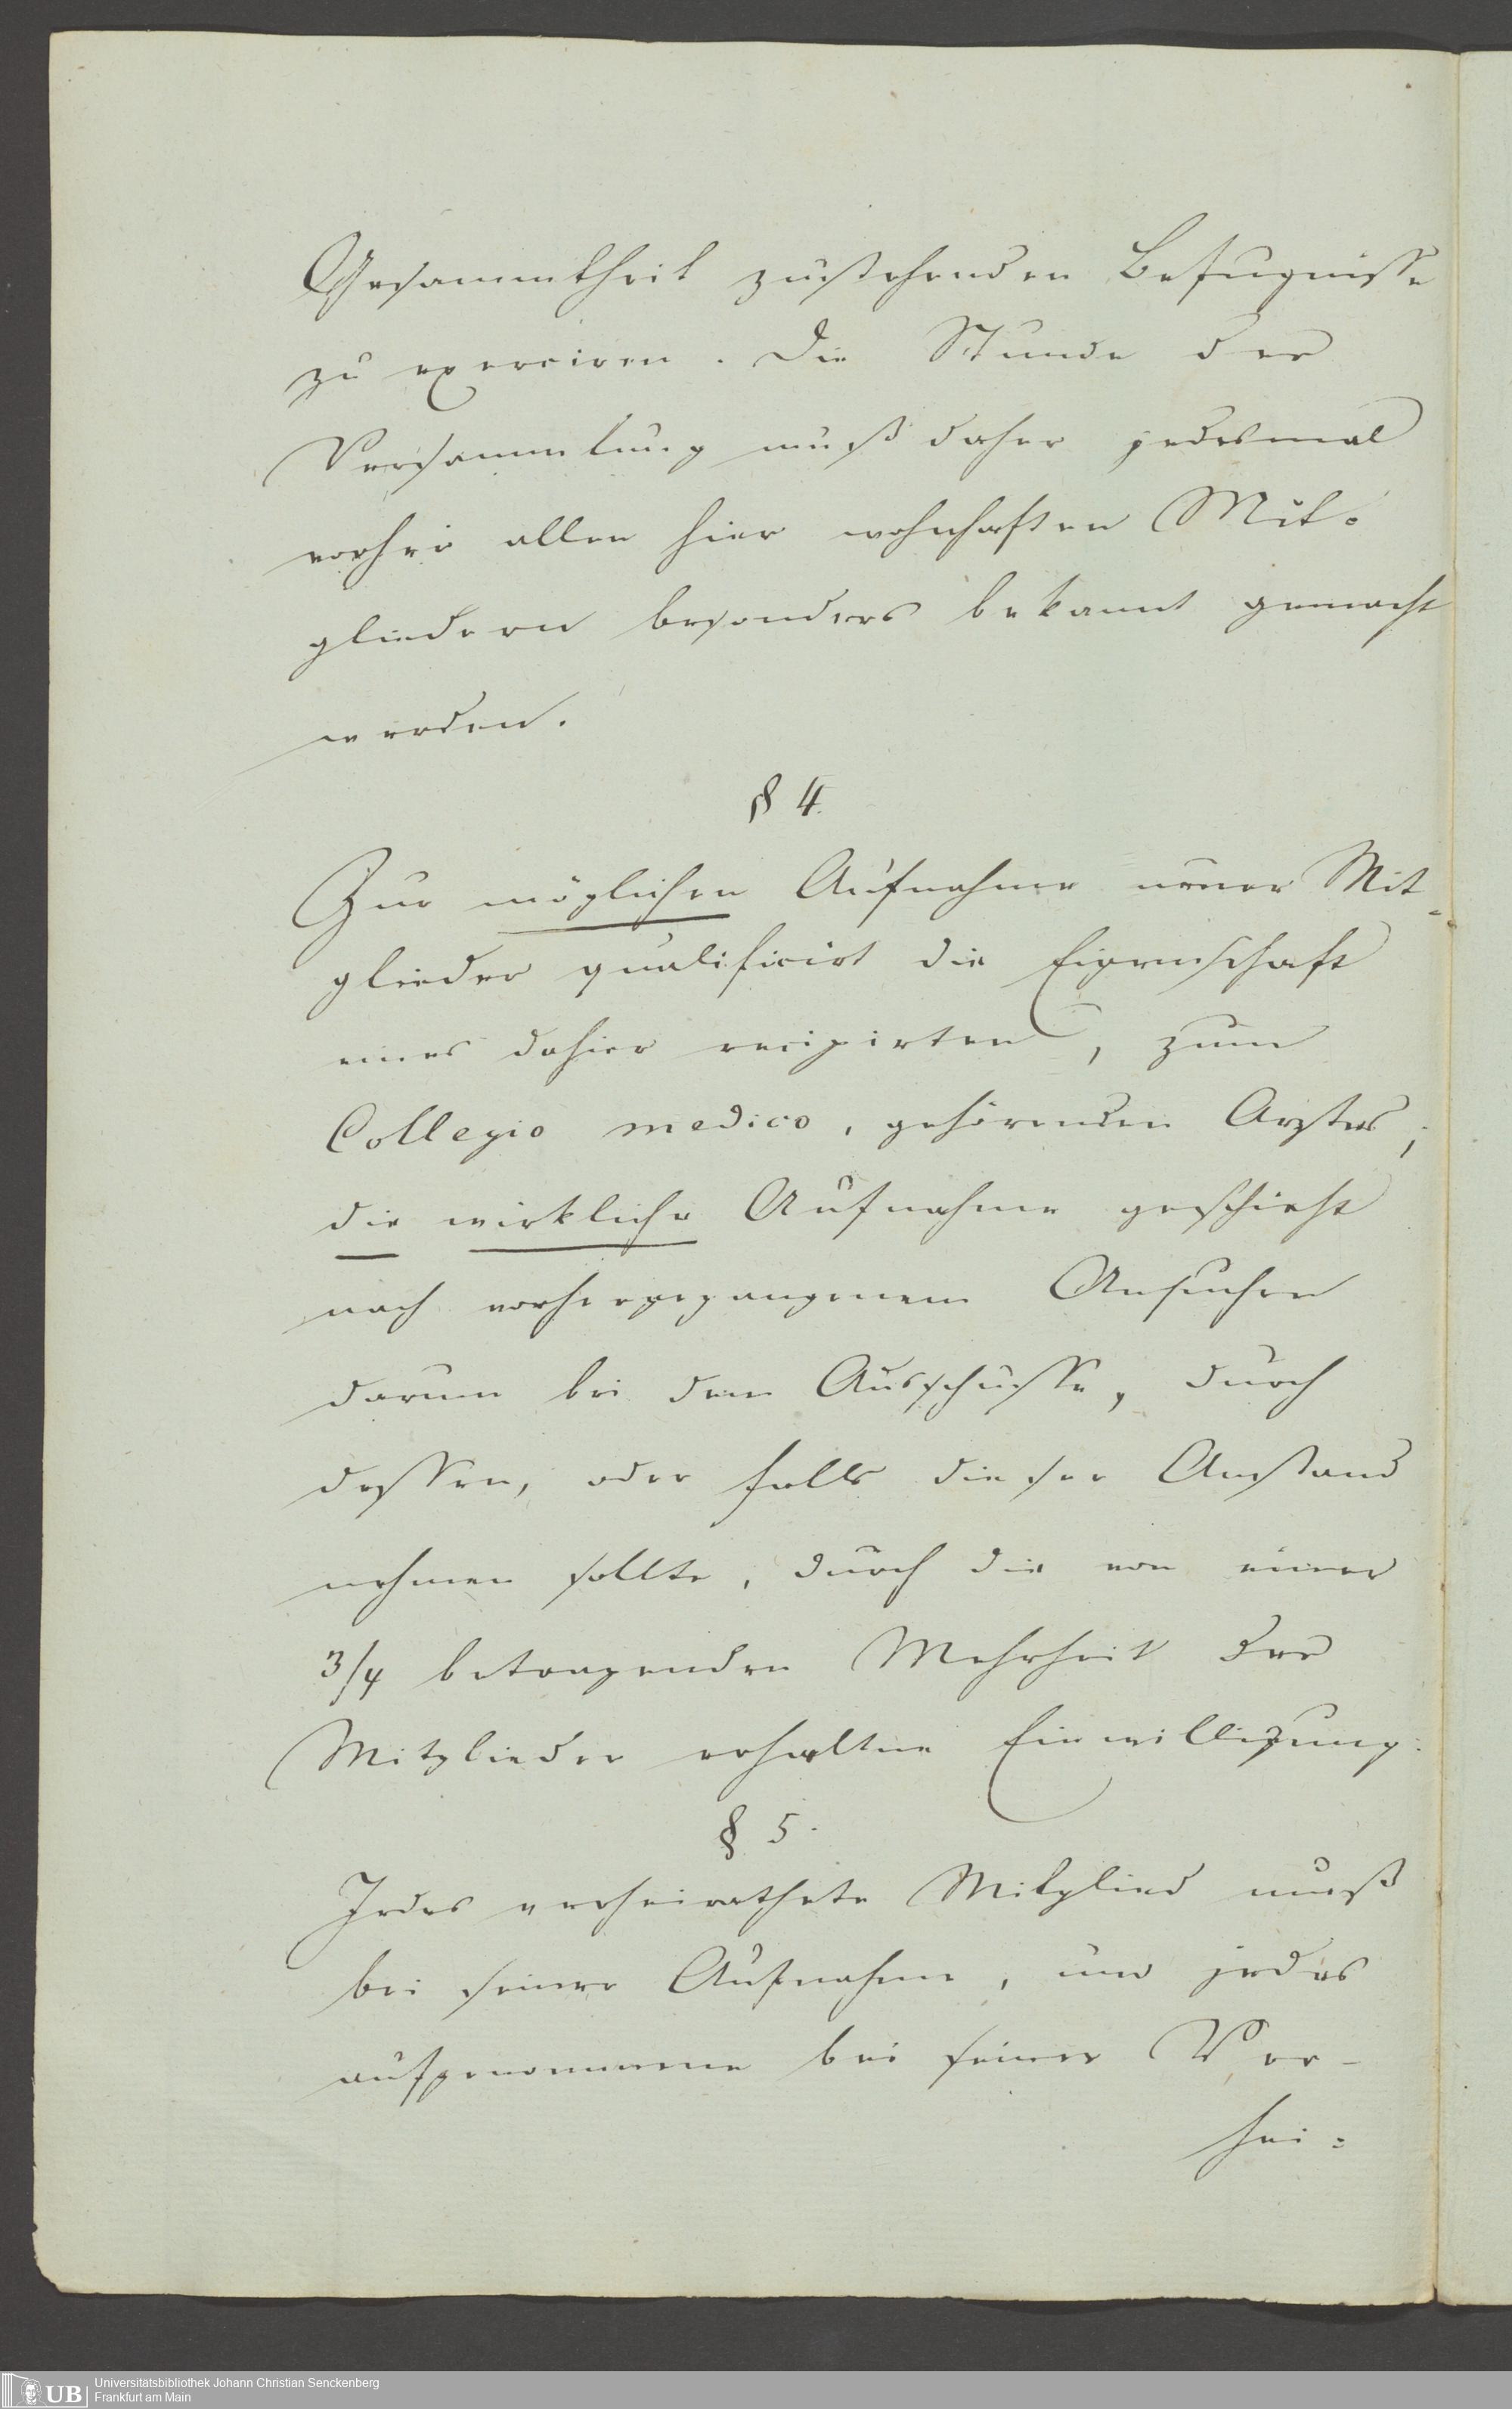 Gesammtheit zustehenden Befugnisse
zu exerciren. Die Stunde der
Versammlung muß daher jedesmal
vorher allen hier wohnhaften Mit-
gliedern besonders bekannt gemacht
werden.
§ 4.
Zur möglichen Aufnahme neuer Mit-
glieder qualificirt die Eigenschaft
eines dahier recipirten, zum
Collegio medico, gehörenden Arztes,
die wirkliche Aufnahme geschieht
nach vorhergegangenem Ansuchen
darum bei dem Ausschusse, durch
dessen, oder falls dieser Anstand
nehmen sollte, durch die von einer
3/4 betragenden Mehrheit der
Mitglieder erhaltne Einwilligung.
§ 5.
Jedes verheirathete Mitglied muß
bei seiner Aufnahme, und jedes
aufgenommene bei seiner Ver-
hei-
Universitätsbibliothek Johann Christian Senckenberg
UB Frankfurt am Main